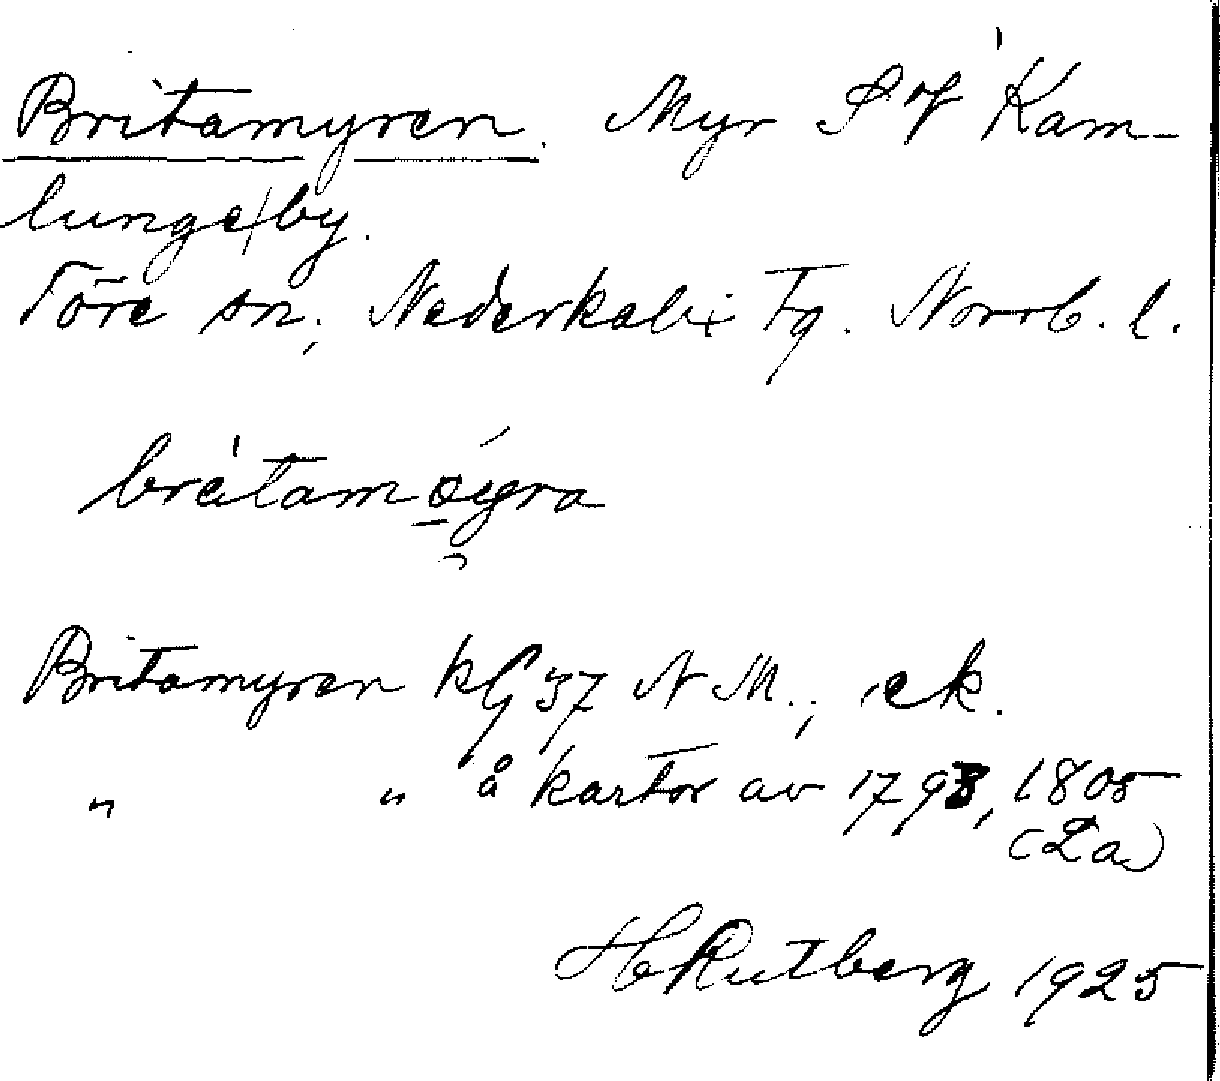 Britamyren. Myr S of Kam-
lunge by.
Töre sn, Nederkalix Tg. Norrb. l.
Britamyren kG 37 N M., ek.
" " å kartor av 1793, 1805
(La)
H Rutberg 1925